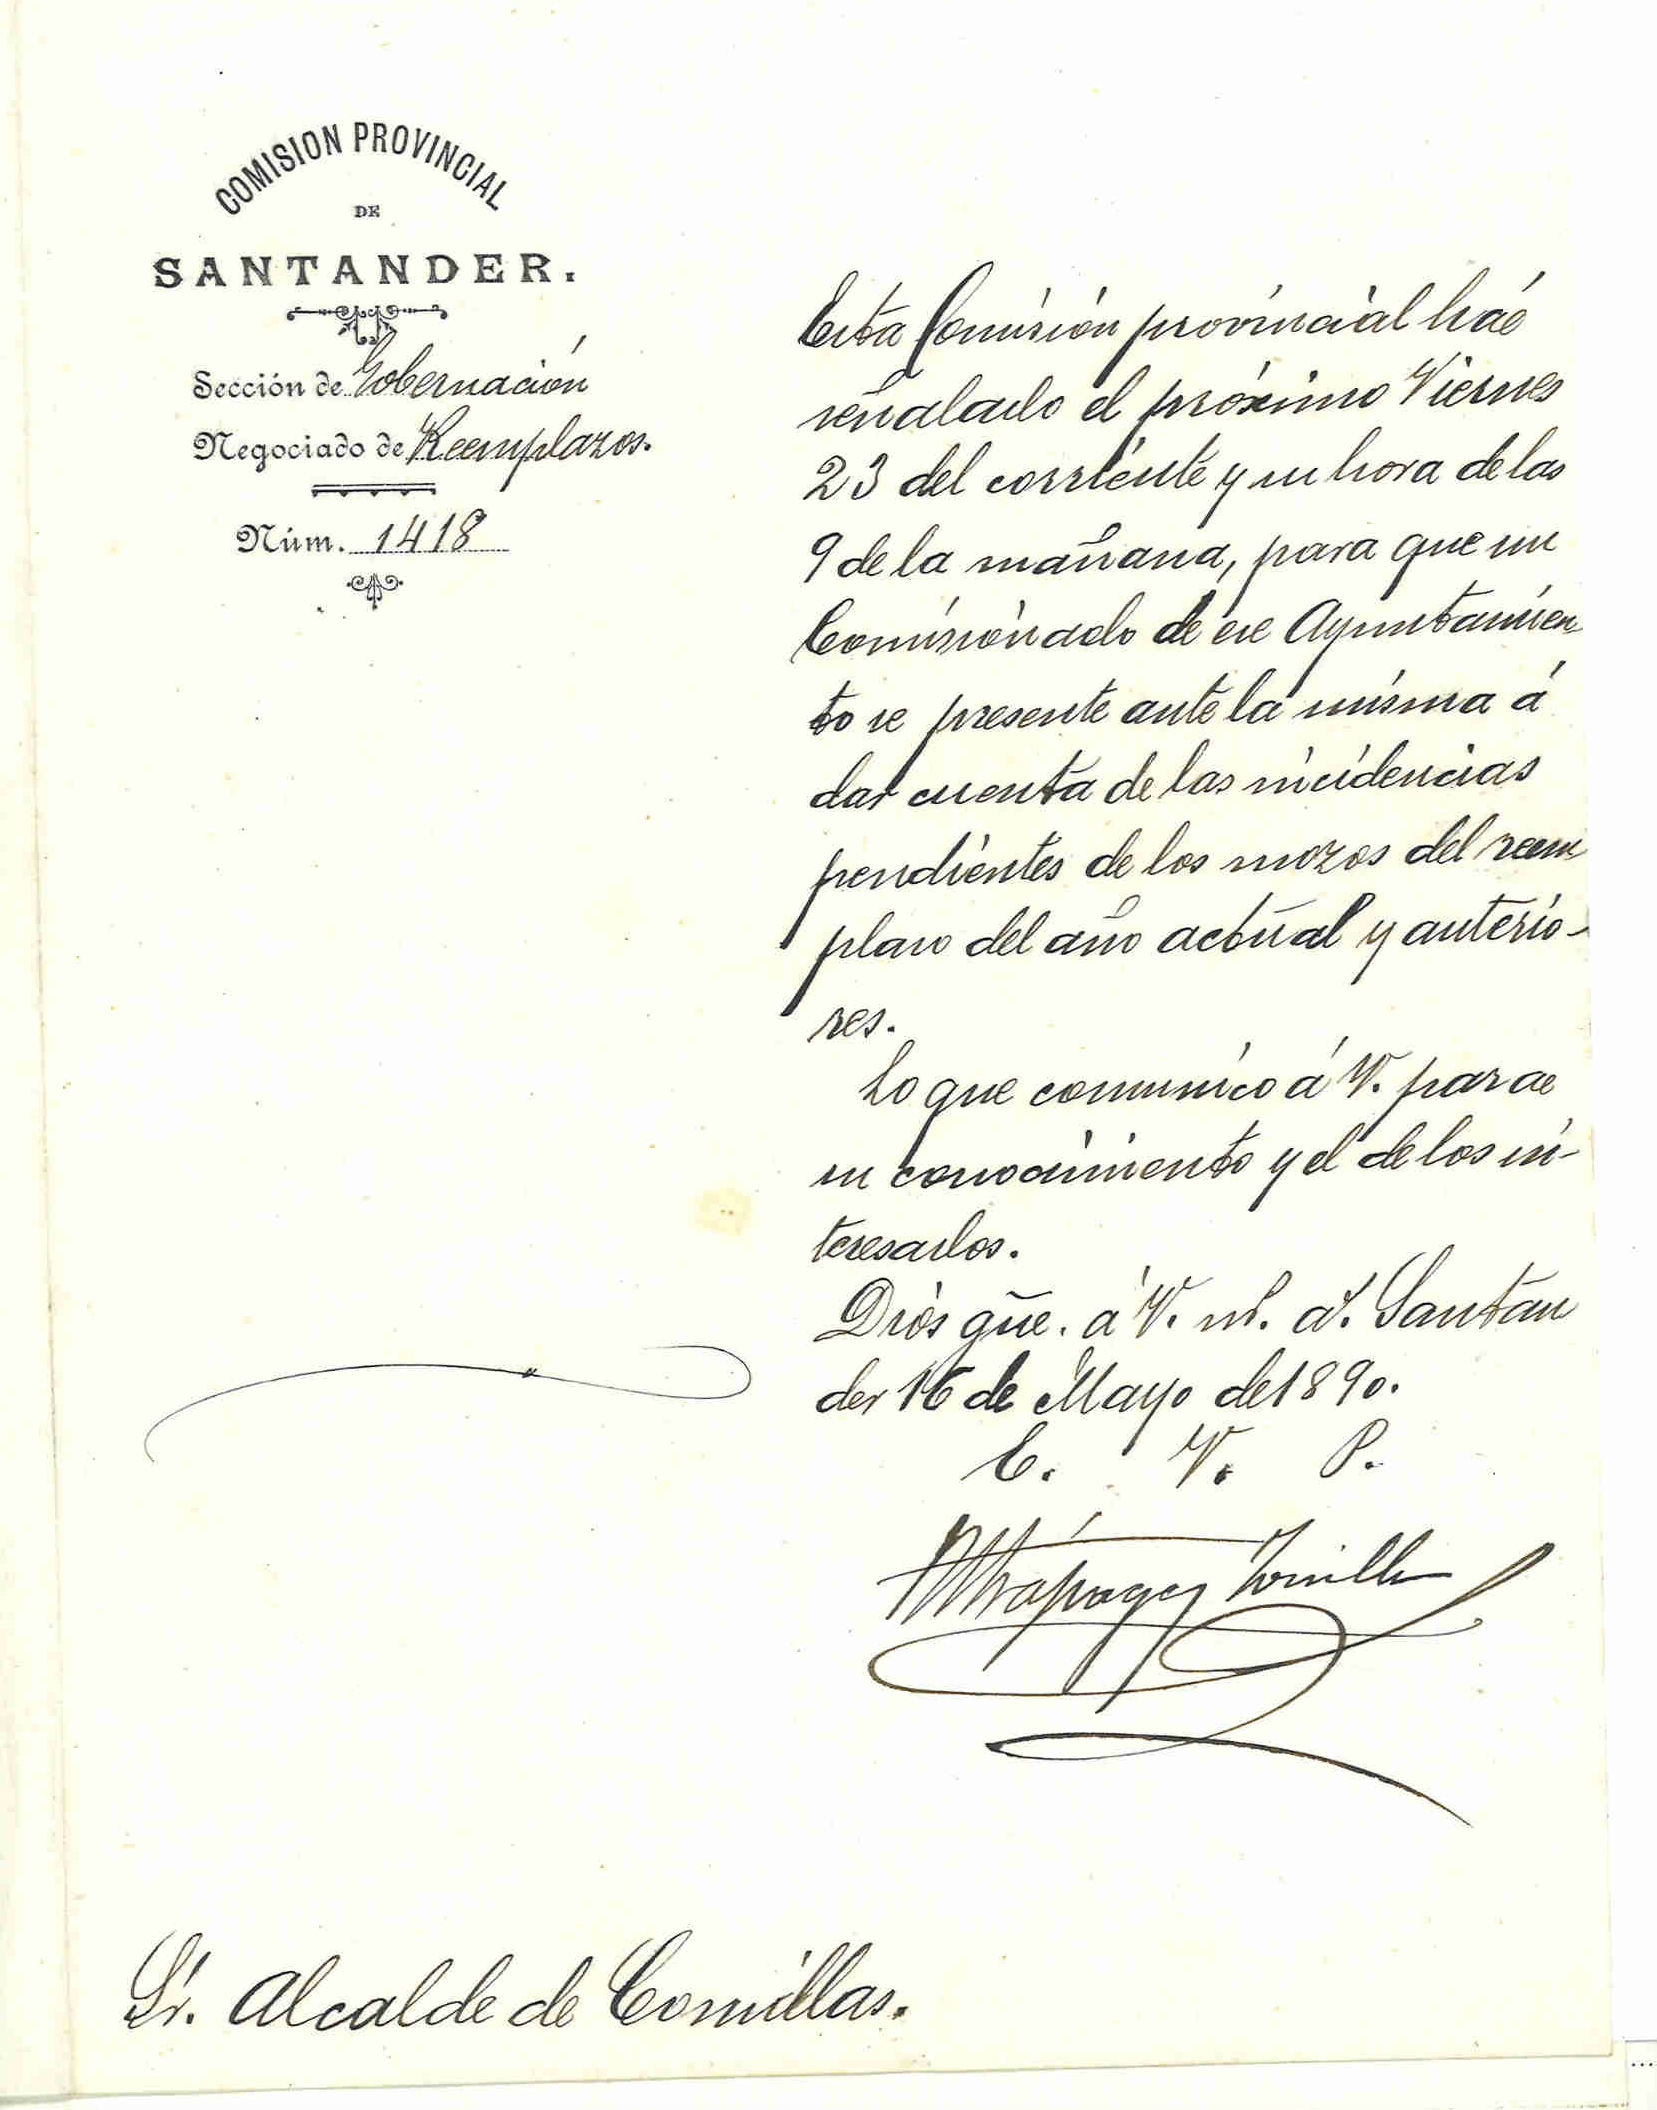 COMISION PROVINCIAL
DE
SANTANDER.
Sección de Gobernación
Negociado de Reemplazos.
Núm. 1418
Esta Comisión provincial há
señalado el próximo Viernes
23 del corriente y su hora de las
9 de la mañana, para que un
Comisionado de ese Ayuntamien
to se presente ante la misma á
dar cuenta de las incidencias
pendientes de los mozos del reem
plazo del año actual y anterio-
res.
Lo que comunico á V. para
su conocimiento y el de los in-
teresados.
Dios gûe. á V. m. a. Santan
der 16 de Mayo de 1890.
E. V. P.
Sr. Alcalde de Comillas.